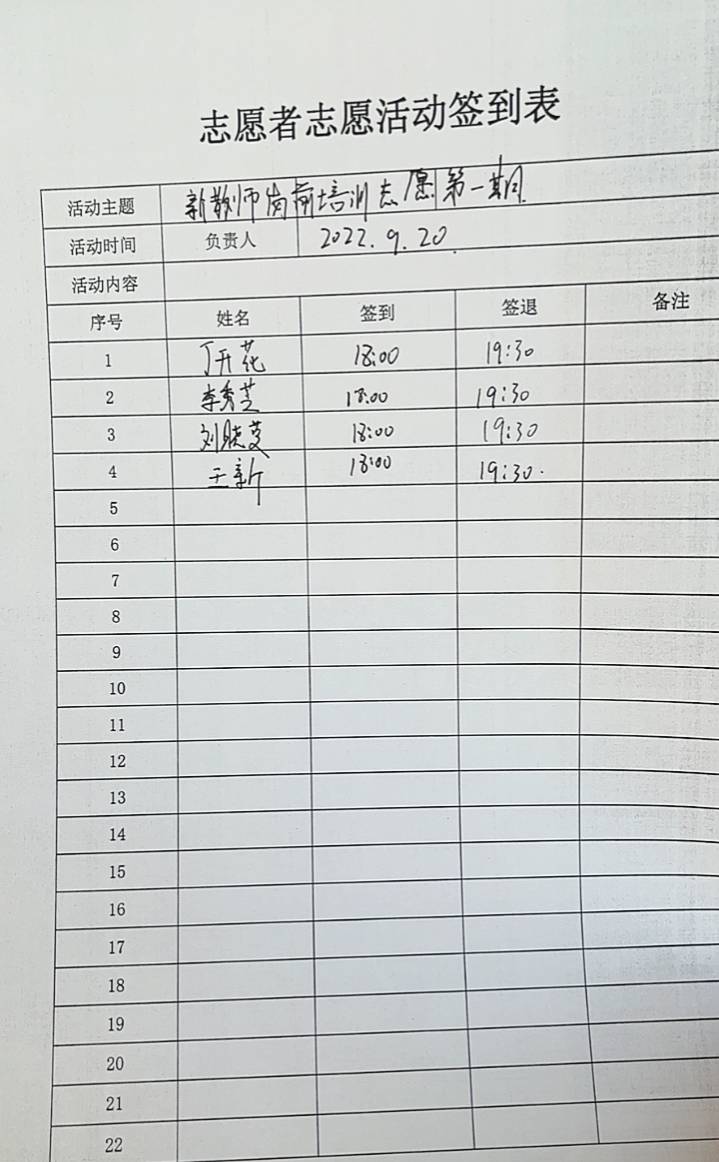 志愿者志愿活动签到表
活动主题 新教师岗前培训志愿第一期
活动时间 负责人 2022.9.20
活动内容
序号 姓名 签到 签退 备注
1 丁开花 18:00 19:30
2 李秀芝 18:00 19:30
3 刘晓蔓 18:00 19:30
4 王新 18:00 19:30.
5
6
7
8
9
10
11
12
13
14
15
16
17
18
19
20
21
22